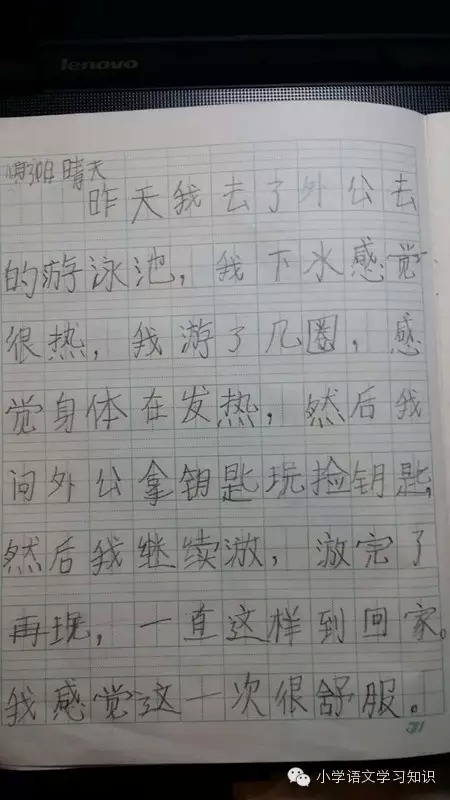 lenovo
11月30日 晴天
昨天我去了外公去
的游泳池,我下水感觉
很热,我游了几圈,感
觉身体在发热,然后我
问外公拿钥匙玩捡钥匙,
然后我继续游,游完了
再玩,一直这样到回家。
我感觉这一次很舒服。
31
小学语文学习知识